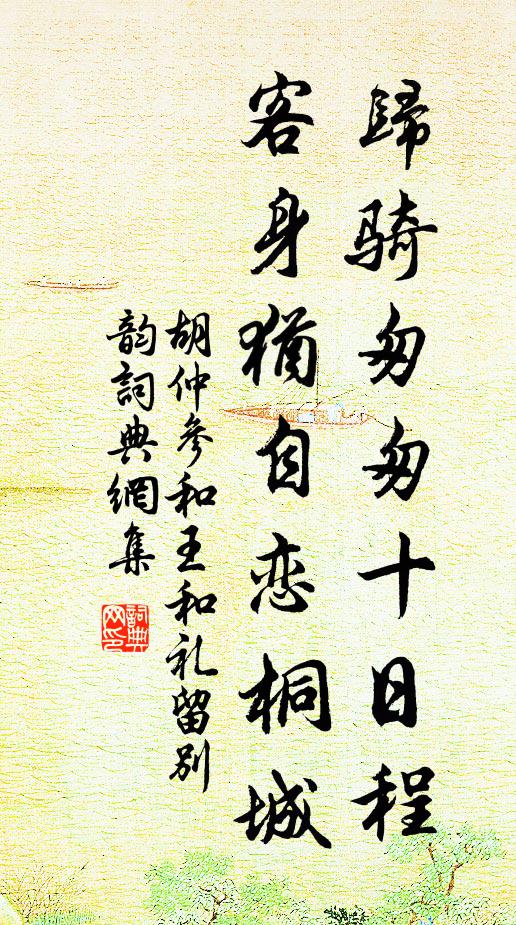 歸骑匆匆十日程
客身猶自恋桐城
胡仲参和王和礼留别
韵詞典網集
詞典
网印